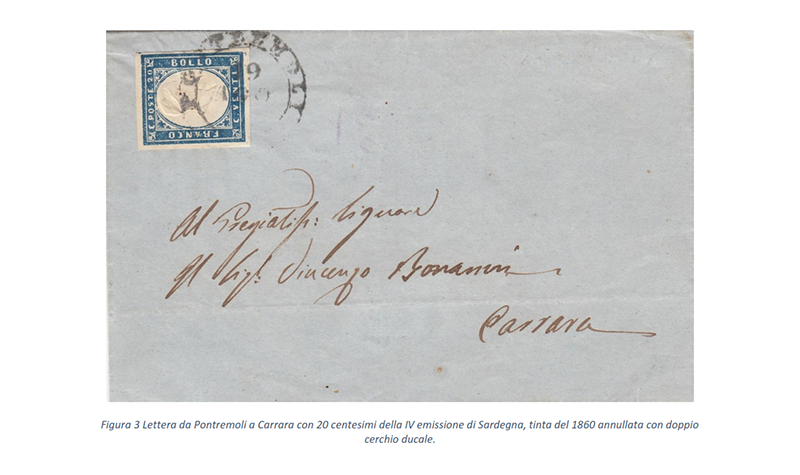 BOLLO
C. POSTE 20
C. VENTI
FRANCO
Al Pregiatiss: Signore
Il Sigr. Vincenzo Bonanni
Carrara
Figura 3 Lettera da Pontremoli a Carrara con 20 centesimi della IV emissione di Sardegna, tinta del 1860 annullata con doppio
cerchio ducale.